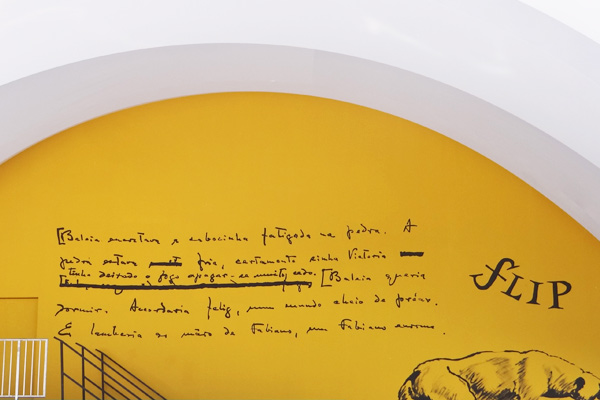 [Baleia encostava a cabecinha fatigada na pedra. A
pedra estava fria, certamente sinha Victoria
tinha deixado o fogo apagar-se muito cedo. [Baleia queria
dormir. Acordaria feliz, num mundo cheio de preás.
E lamberia as mãos de Fabiano, um Fabiano enorme.
FLIP